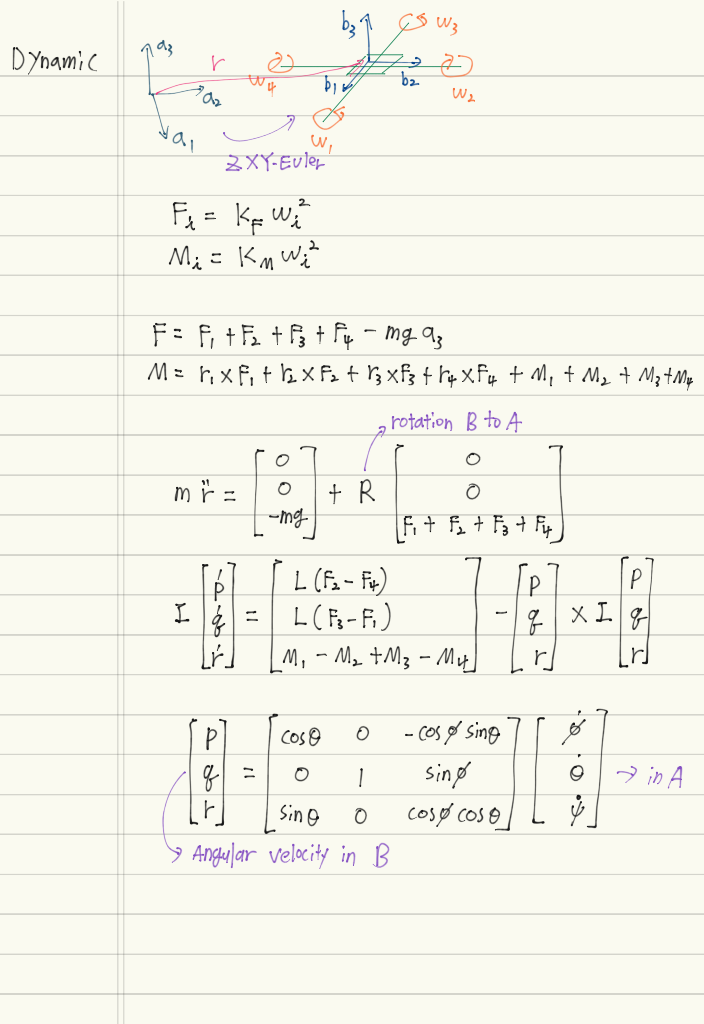 Dynamic
a₃
r
b₃
w₃
w₄
a₂
b₁
b₂
w₂
a₁
w₁
ZXY-Euler
Fᵢ = K_F wᵢ²
Mᵢ = K_M wᵢ²
F = F₁ + F₂ + F₃ + F₄ - mg a₃
M = r₁ × F₁ + r₂ × F₂ + r₃ × F₃ + r₄ × F₄ + M₁ + M₂ + M₃ + M₄
rotation B to A
m r̈ = [0; 0; -mg] + R [0; 0; F₁ + F₂ + F₃ + F₄]
I [ṗ; q̇; ṙ] = [L(F₂ - F₄); L(F₃ - F₁); M₁ - M₂ + M₃ - M₄] - [p; q; r] × I [p; q; r]
[p; q; r] = [cosθ 0 -cosϕ sinθ; 0 1 sinϕ; sinθ 0 cosϕ cosθ] [ϕ̇; θ̇; ψ̇] → in A
Angular velocity in B